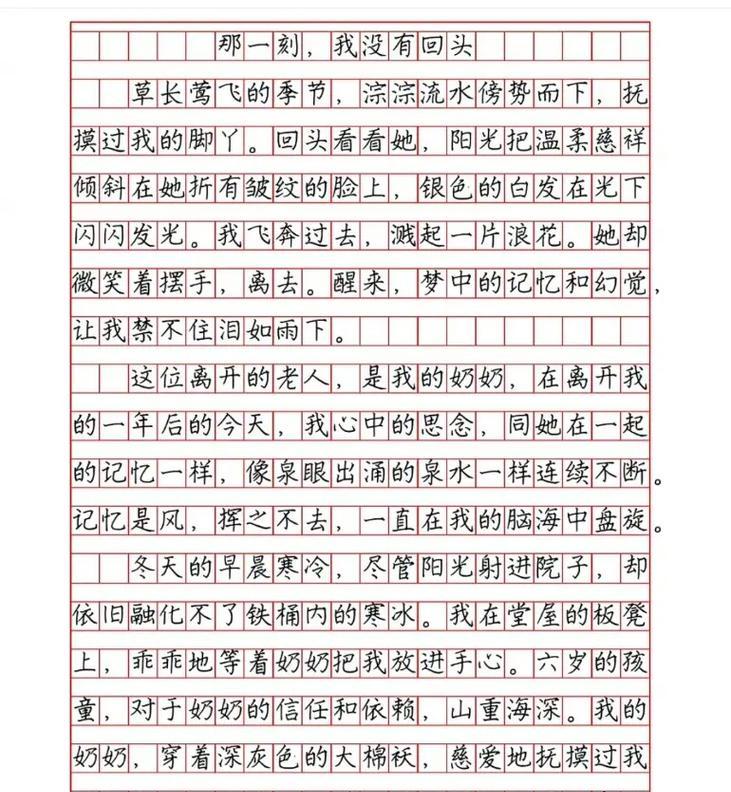 那一刻，我没有回头
草长莺飞的季节，淙淙流水傍势而下，抚
摸过我的脚丫。回头看看她，阳光把温柔慈祥
倾斜在她折有皱纹的脸上，银色的白发在光下
闪闪发光。我飞奔过去，溅起一片浪花。她却
微笑着摆手，离去。醒来，梦中的记忆和幻觉，
让我禁不住泪如雨下。
这位离开的老人，是我的奶奶，在离开我
的一年后的今天，我心中的思念，同她在一起
的记忆一样，像泉眼出涌的泉水一样连续不断。
记忆是风，挥之不去，一直在我的脑海中盘旋。
冬天的早晨寒冷，尽管阳光射进院子，却
依旧融化不了铁桶内的寒冰。我在堂屋的板凳
上，乖乖地等着奶奶把我放进手心。六岁的孩
童，对于奶奶的信任和依赖，山重海深。我的
奶奶，穿着深灰色的大棉袄，慈爱地抚摸过我